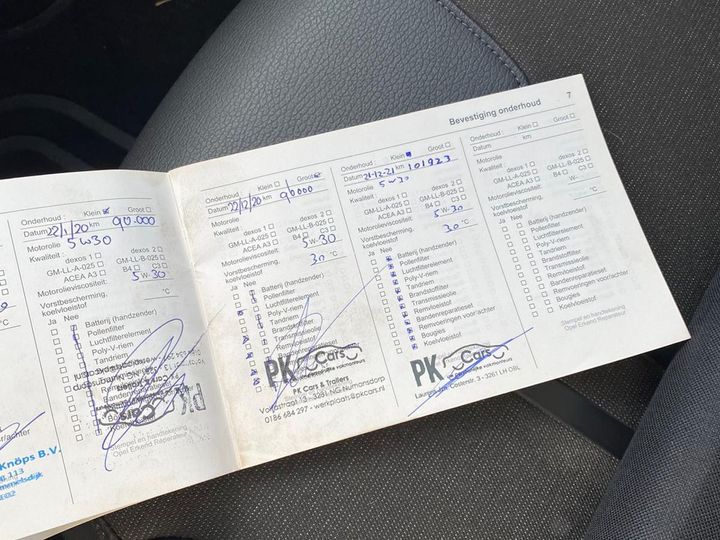 Bevestiging onderhoud 7
Onderhoud: Klein Groot
Datum 22/1/20 km 90.000
Motorolie 5w30
Kwaliteit: dexos 1 dexos 2
GM-LL-A-025 GM-LL-B-025
ACEA A3 B4 C3
Motorolieviscositeit: 5 W-30
Vorstbescherming,
koelvloeistof °C
Ja Nee
Batterij (handzender)
Pollenfilter
Luchtfilterelement
Poly-V-riem
Tandriem
Stempel en handtekening
Opel Erkend Reparateur
Knöps B.V.
Onderhoud: Klein Groot
Datum 22/12/20 km 90000
Motorolie 5w30
Kwaliteit: dexos 1 dexos 2
GM-LL-A-025 GM-LL-B-025
ACEA A3 B4 C3
Motorolieviscositeit: 5 W-30
Vorstbescherming,
koelvloeistof 30 °C
Ja Nee
Batterij (handzender)
Pollenfilter
Luchtfilterelement
Poly-V-riem
Tandriem
Brandstoffilter
Transmissieolie
PK Cars
PK Cars & Trailers
Voorstraat 13 - 3281 NG Numansdorp
0186 684 297 - werkplaats@pkcars.nl
Onderhoud: Klein Groot
Datum 21-12-21 km 101923
Motorolie 5w30
Kwaliteit: dexos 1 dexos 2
GM-LL-A-025 GM-LL-B-025
ACEA A3 B4 C3
Motorolieviscositeit: 5 W-30
Vorstbescherming,
koelvloeistof 30 °C
Ja Nee
Batterij (handzender)
Pollenfilter
Luchtfilterelement
Poly-V-riem
Tandriem
Brandstoffilter
Transmissieolie
Remvloeistof
Bandenreparatieset
Remvoeringen voor/achter
Bougies
Koelvloeistof
PK Cars
Onderhoud: Klein Groot
Datum km
Motorolie
Kwaliteit: dexos 1 dexos 2
GM-LL-A-025 GM-LL-B-025
ACEA A3 B4 C3
Motorolieviscositeit: W-
Vorstbescherming,
koelvloeistof °C
Ja Nee
Batterij (handzender)
Pollenfilter
Luchtfilterelement
Poly-V-riem
Tandriem
Brandstoffilter
Transmissieolie
Remvloeistof
Bandenreparatieset
Remvoeringen voor/achter
Bougies
Koelvloeistof
Stempel en handtekening
Opel Erkend Reparateur